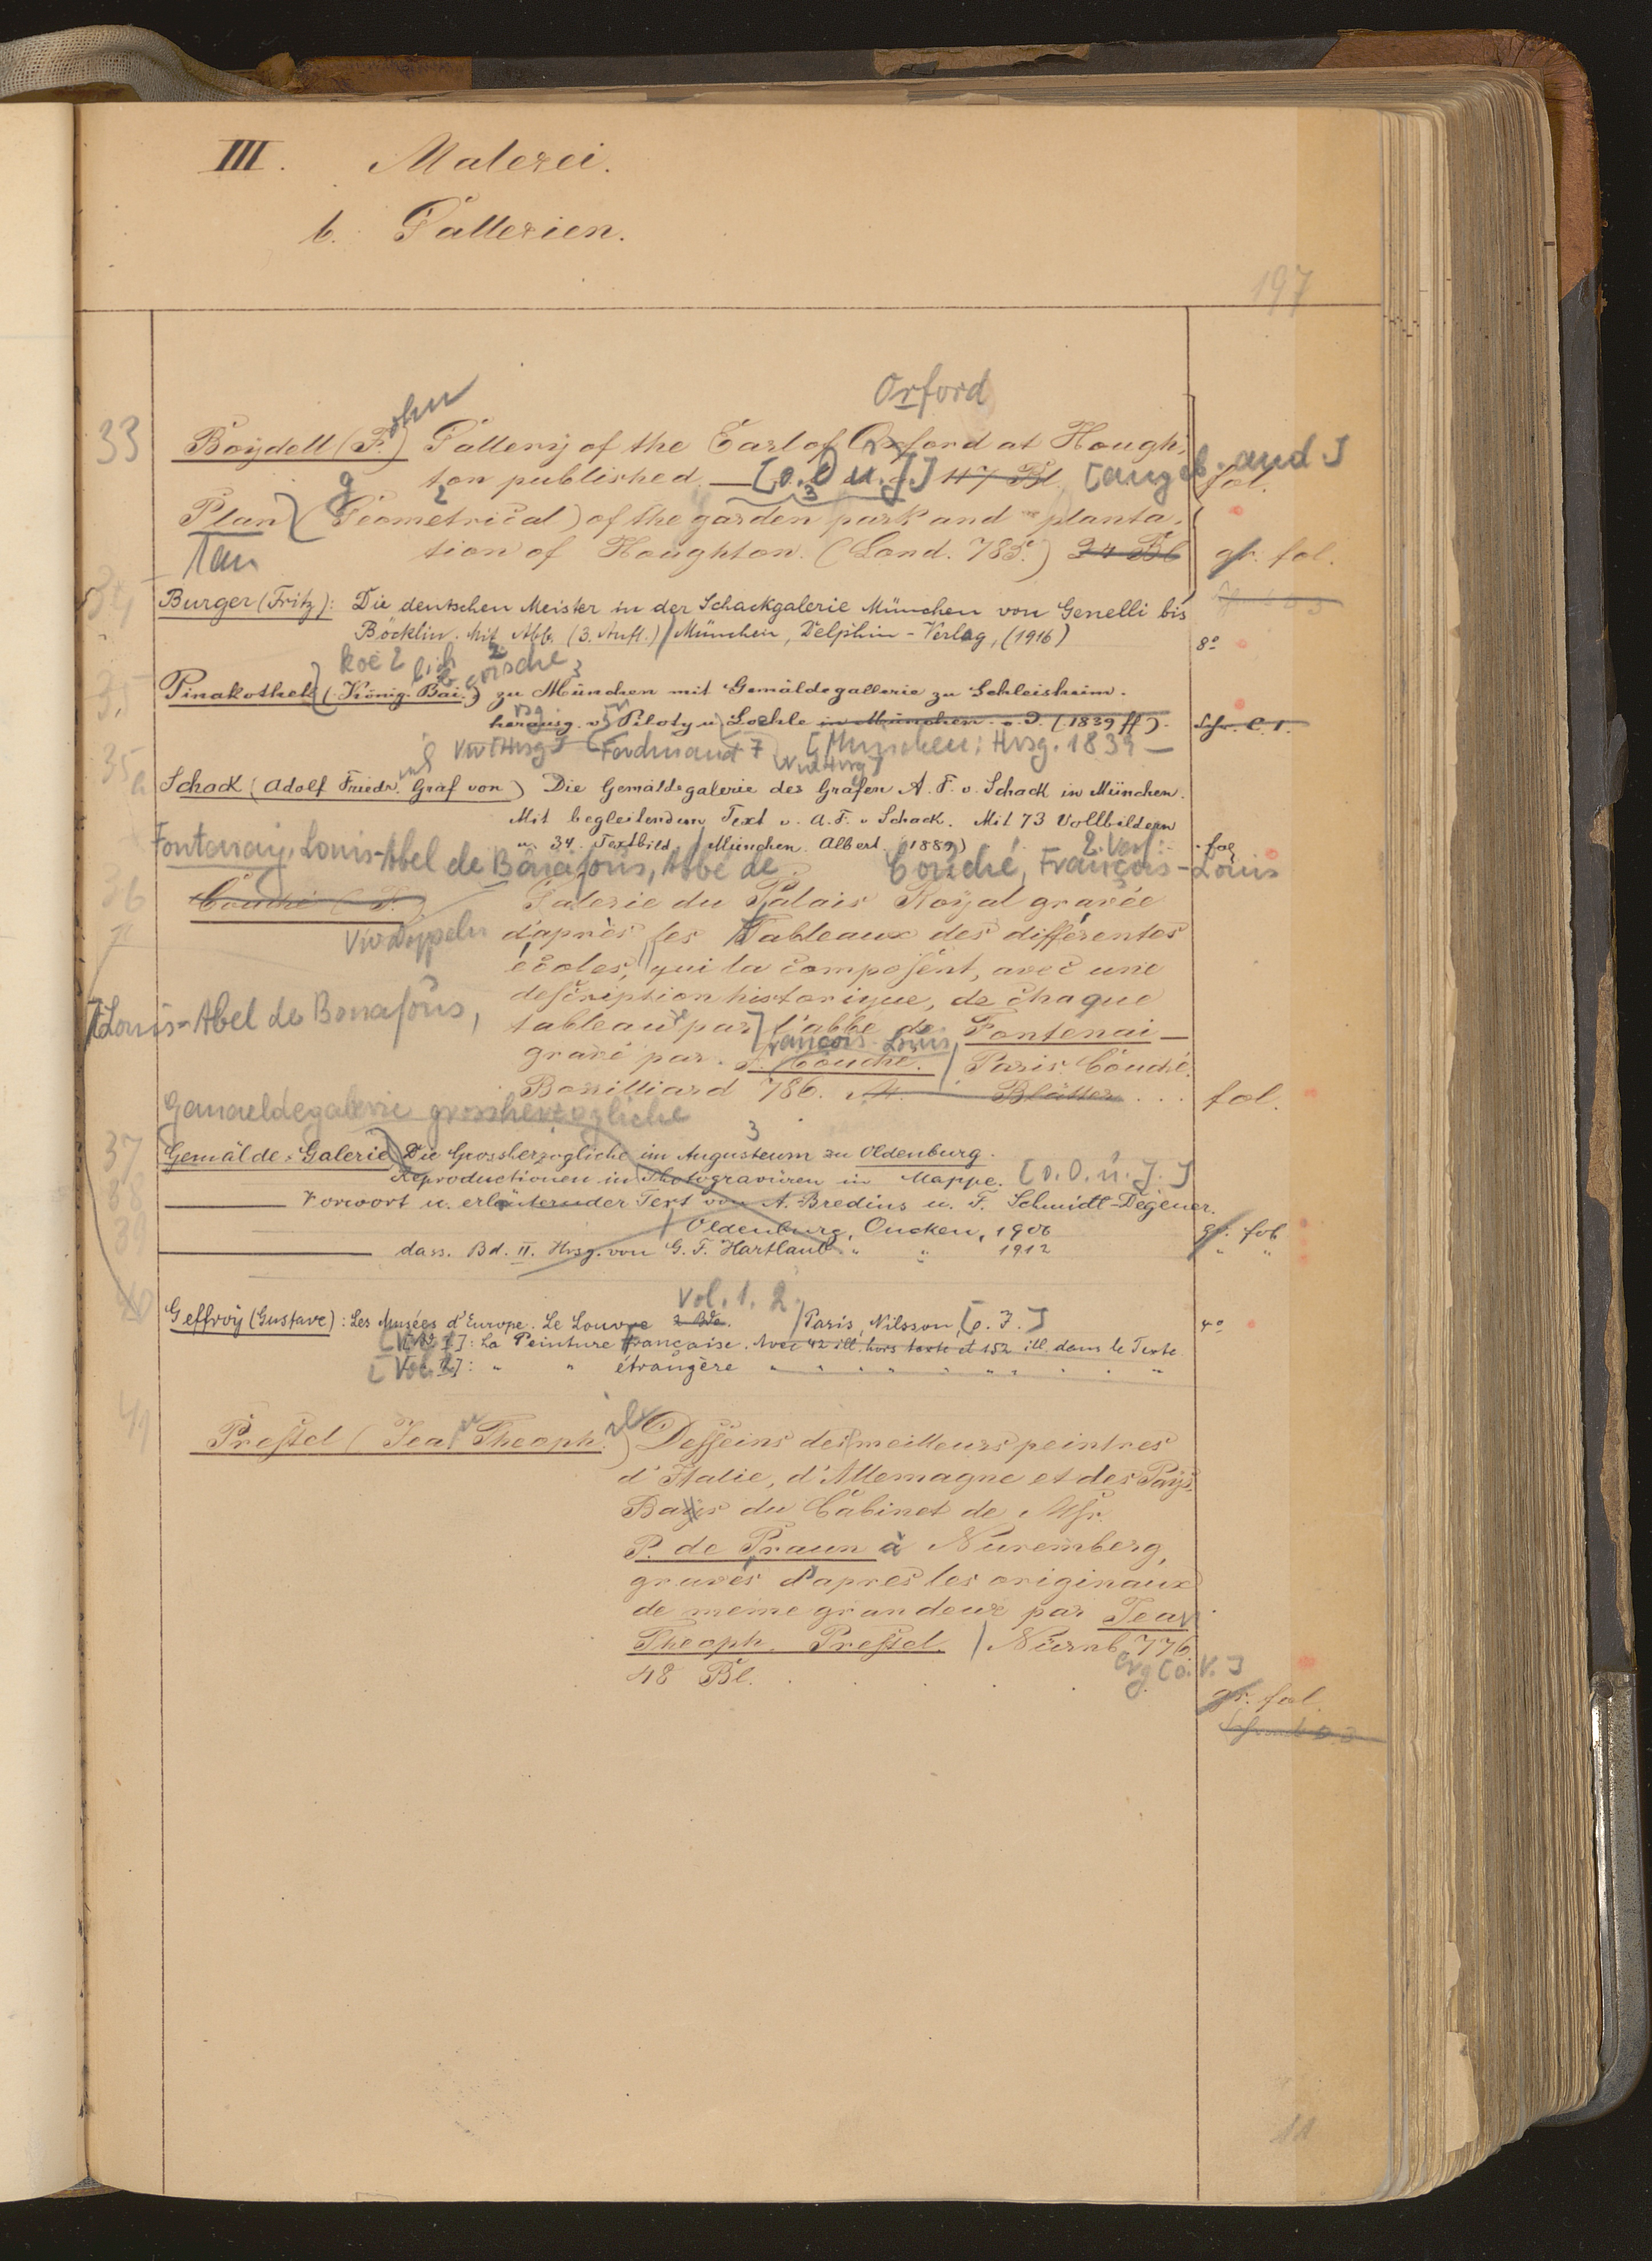 III. Malerei.
b. Gallerien.
197
Orford
ohn
33 Boydell (F.) Gallery of the Earl of Oxford at Hough-
ton published. [o. O u. J.] 117 Bl. [angeb. and.] fol.
Plan (Geometrical) of the garden park and planta-
tion of Houghton. (Lond. 785.) 24 Bl gr. fol.
34 Burger (Fritz): Die deutschen Meister in der Schackgalerie München von Genelli bis
Böcklin. Mit Abb. (3. Aufl.) München, Delphin-Verlag, (1916) 8°
35 Pinakothek (König. Bai.) zu München mit Gemäldegallerie zu Schleisheim.
herausg. v. Piloty u. Loehle in München. o. J. (1839 ff).
[München: Hrsg. 1839 —
35a Schack (Adolf Friedr. Graf von) Die Gemäldegalerie des Grafen A. F. v. Schack in München.
Mit begleitendem Text v. A. F. v Schack. Mit 73 Vollbildern
u. 34. Textbild. München. Albert. (1889) fol
Fontenay, Louis-Abel de Bonafous, Abbé de 2. Verf.: Couché, François-Louis
36 Couché (F.) Galerie du Palais Royal gravée
d'après les Tableaux des différentes
écoles, qui la composent, avec une
description historique, de chaque
Louis-Abel de Bonafous, tableau par l'abbé de Fontenai —
François-Louis
gravé par F. Couché. Paris. Couché.
Bouilliard 786. Blätter... fol.
Gemaeldegalerie grossherzogliche
37 Gemälde-Galerie Die Grossherzogliche im Augusteum zu Oldenburg.
38 Reproductionen in Photogravüren in Mappe. [o. O. u. J.]
39 Vorwort u. erläuternder Text von A. Bredius u. F. Schmidt-Degener.
Oldenburg, Oncken, 1906 gr. fol
dass. Bd. II. Hrsg. von G. F. Hartlaub " " 1912 " "
Vol. 1. 2.
40 Geffroy (Gustave): Les Musées d'Europe. Le Louvre 2 Bde. Paris, Nilsson, [o. J.] 4°
[Vol. 1]: La Peinture française. Avec 42 ill. hors texte et 152 ill. dans le Texte
[Vol. 2]: " " étrangère " " " " " " " "
41 Prestel (Jean Theoph.) Desseins des meilleurs peintres
d'Italie, d'Allemagne et des Pays-
Bays du Cabinet de Msr.
P. de Praun à Nuremberg,
gravés d'apres les originaux
de meme grandeur par Jean
Theoph. Prestel. Nürnb. 776.
48 Bl. gr. fol.